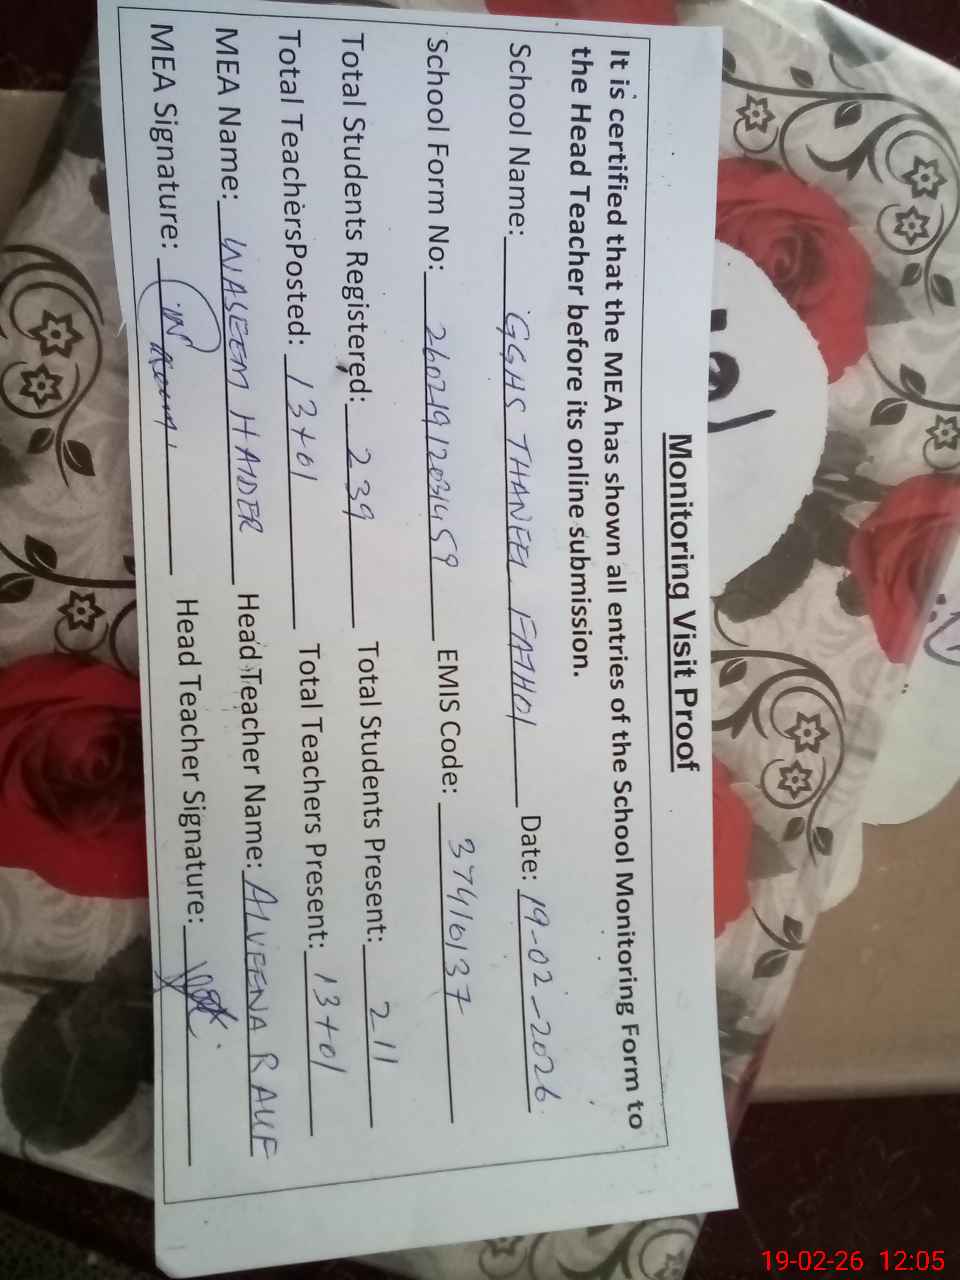 Monitoring Visit Proof
It is certified that the MEA has shown all entries of the School Monitoring Form to
the Head Teacher before its online submission.
School Name: GGHS THANEEL FATHOI Date: 19-02-2026
School Form No: EMIS Code: 37410137
Total Students Registered: 239 Total Students Present: 211
Total TeachersPosted: 13+01 Total Teachers Present: 13+01
MEA Name: WASEEM HAIDER Head Teacher Name: ALVEENA RAUF
MEA Signature: Head Teacher Signature:
19-02-26 12:05